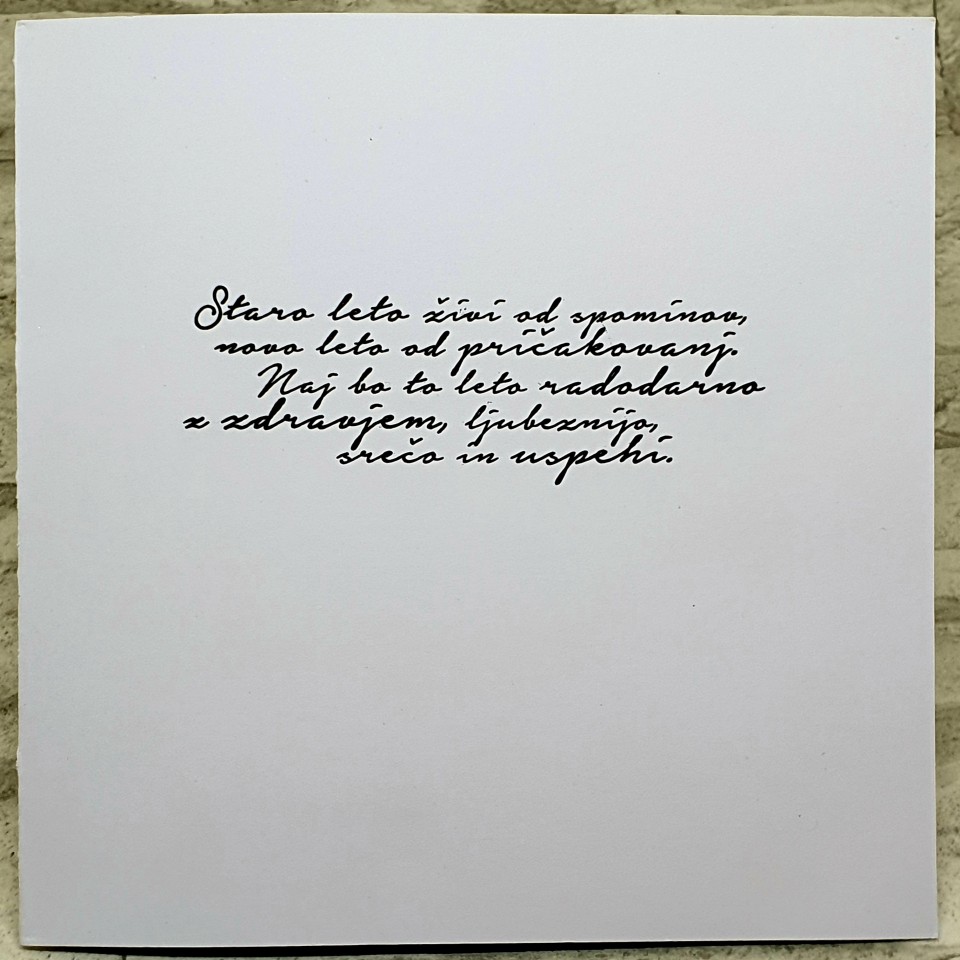 Staro leto živi od spominov,
novo leto od pričakovanj.
Naj bo to leto radodarno
z zdravjem, ljubeznijo,
srečo in uspehi.